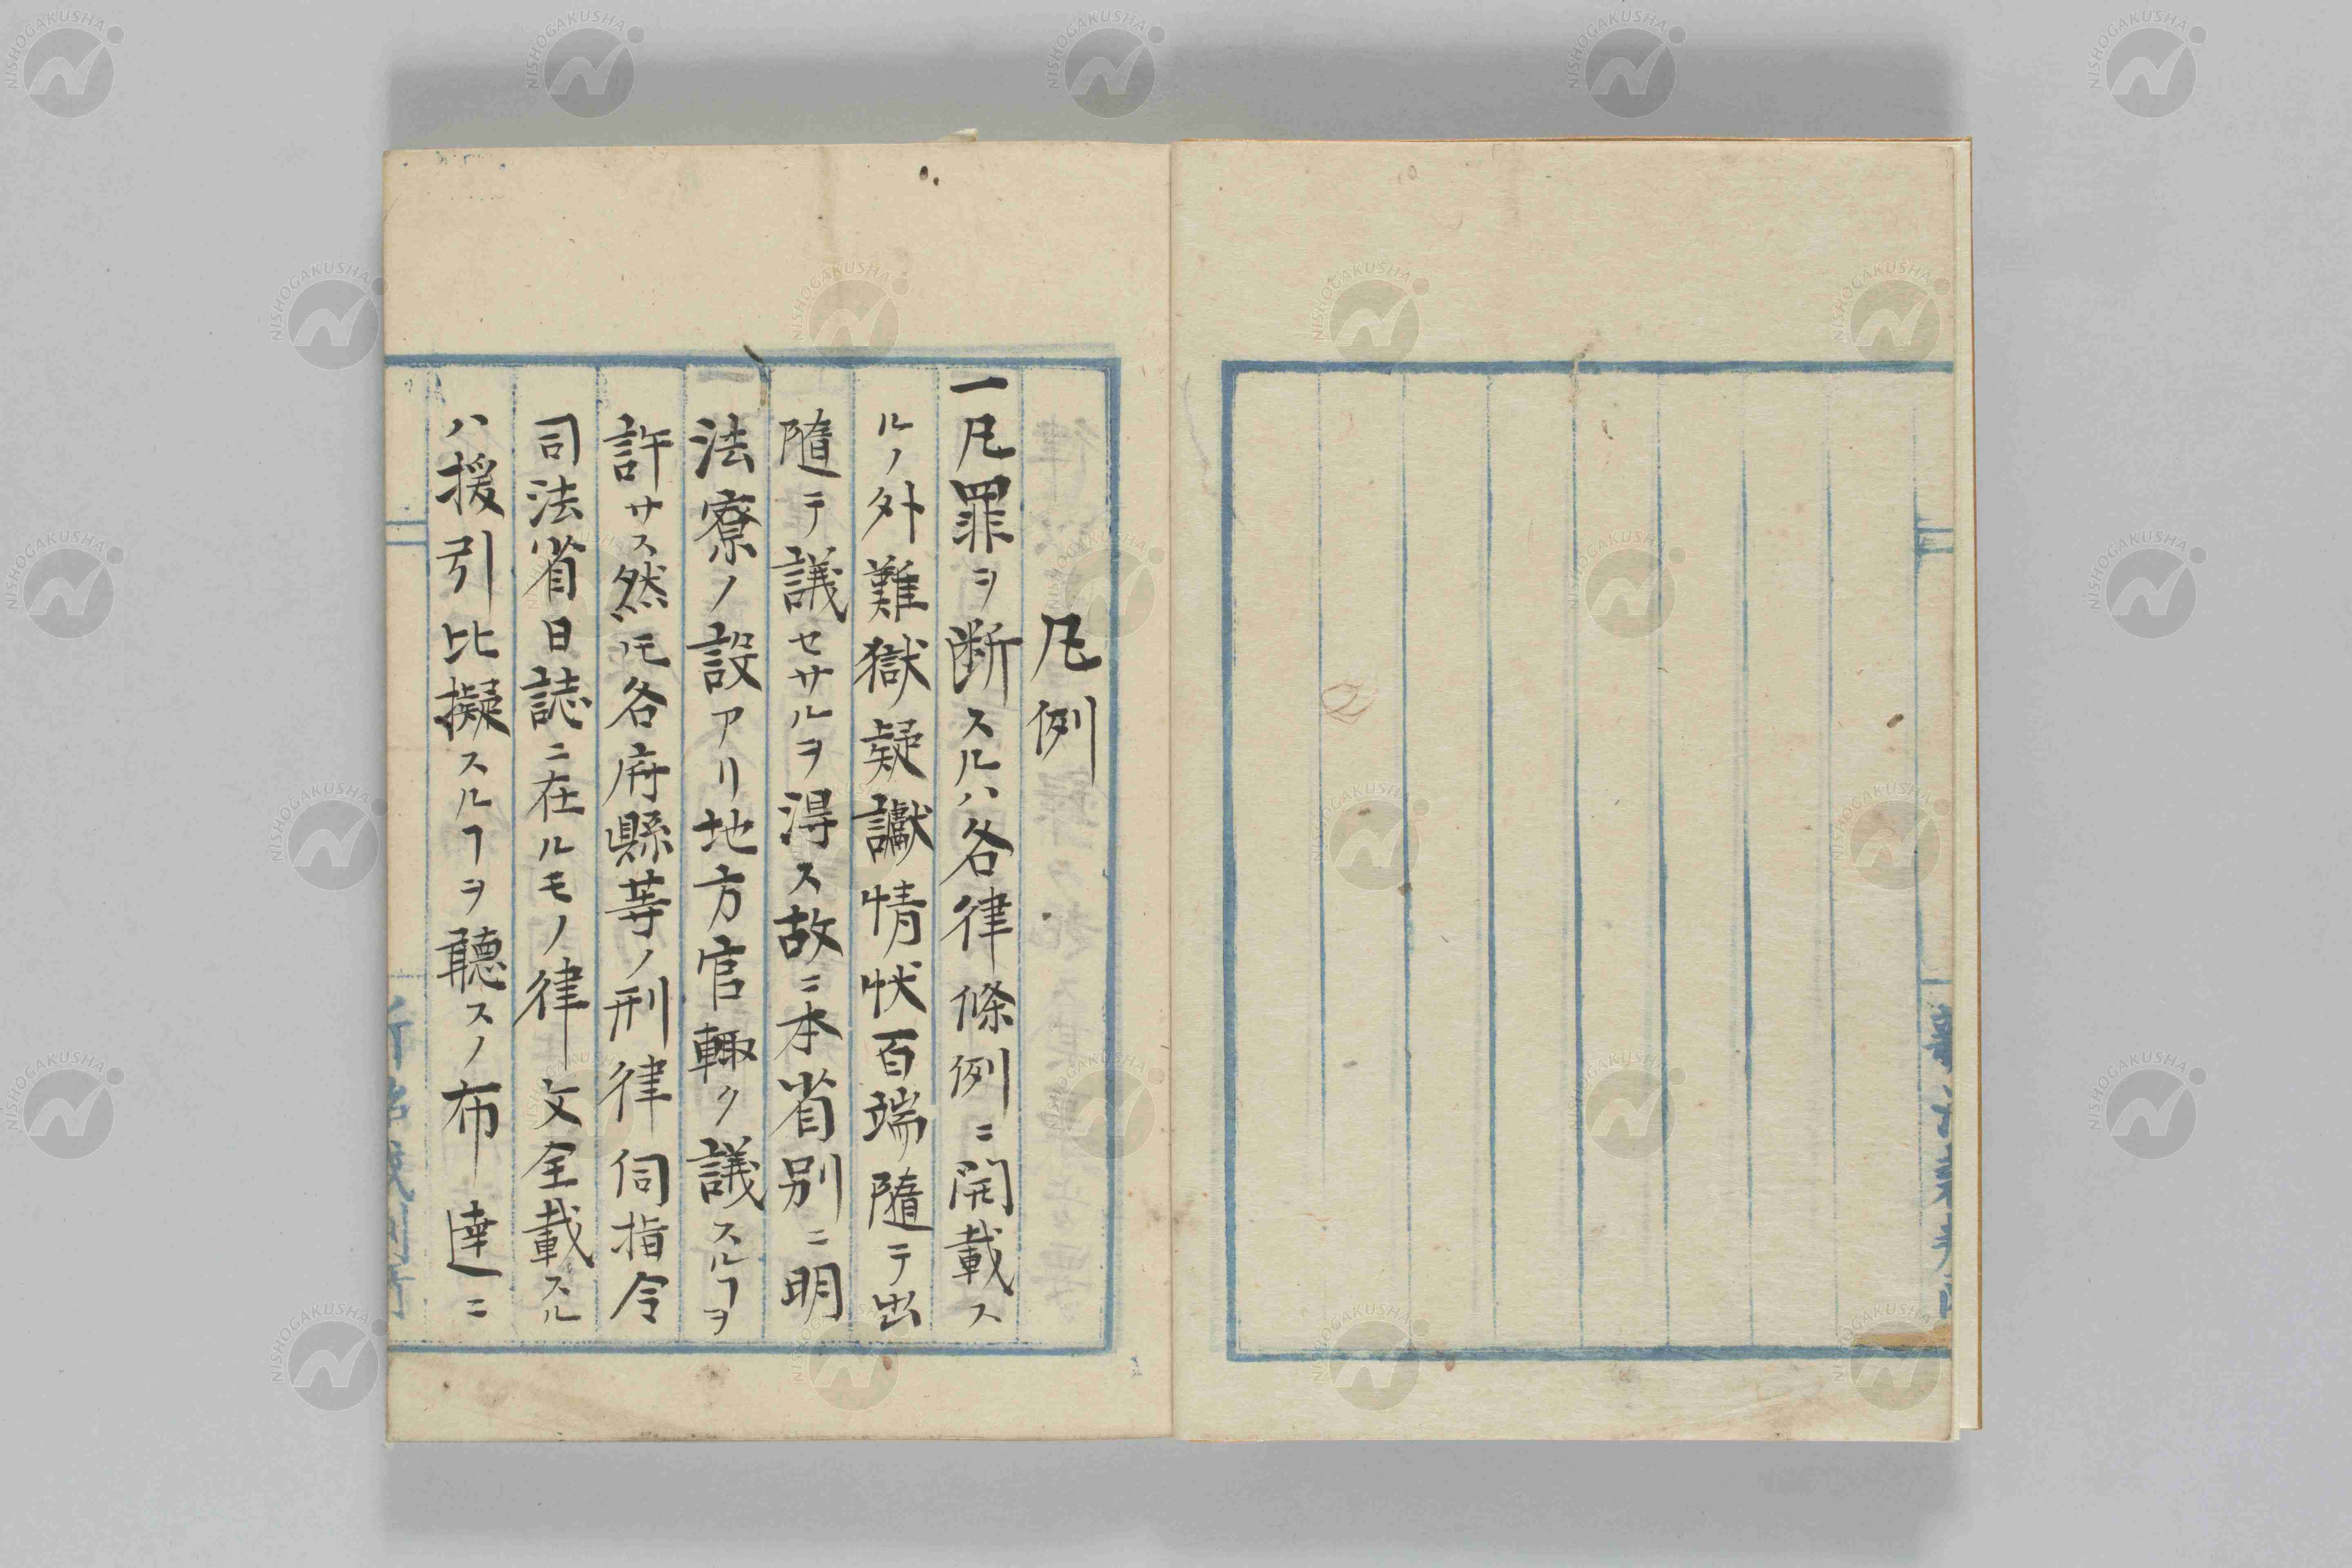 凡例
一凡罪ヲ断スルハ各律條例ニ開載ス
ルノ外難獄疑讞情状百端隨テ出
隨テ議セサルヲ得ス故ニ本省別ニ明
法寮ノ設アリ地方官輙ク議スルヿヲ
許サス然ルモ各府縣等ノ刑律伺指令
司法省日誌ニ在ルモノ律文全載スル
ハ援引比擬スルヿヲ聽スノ布達ニ
NISHOGAKUSHA